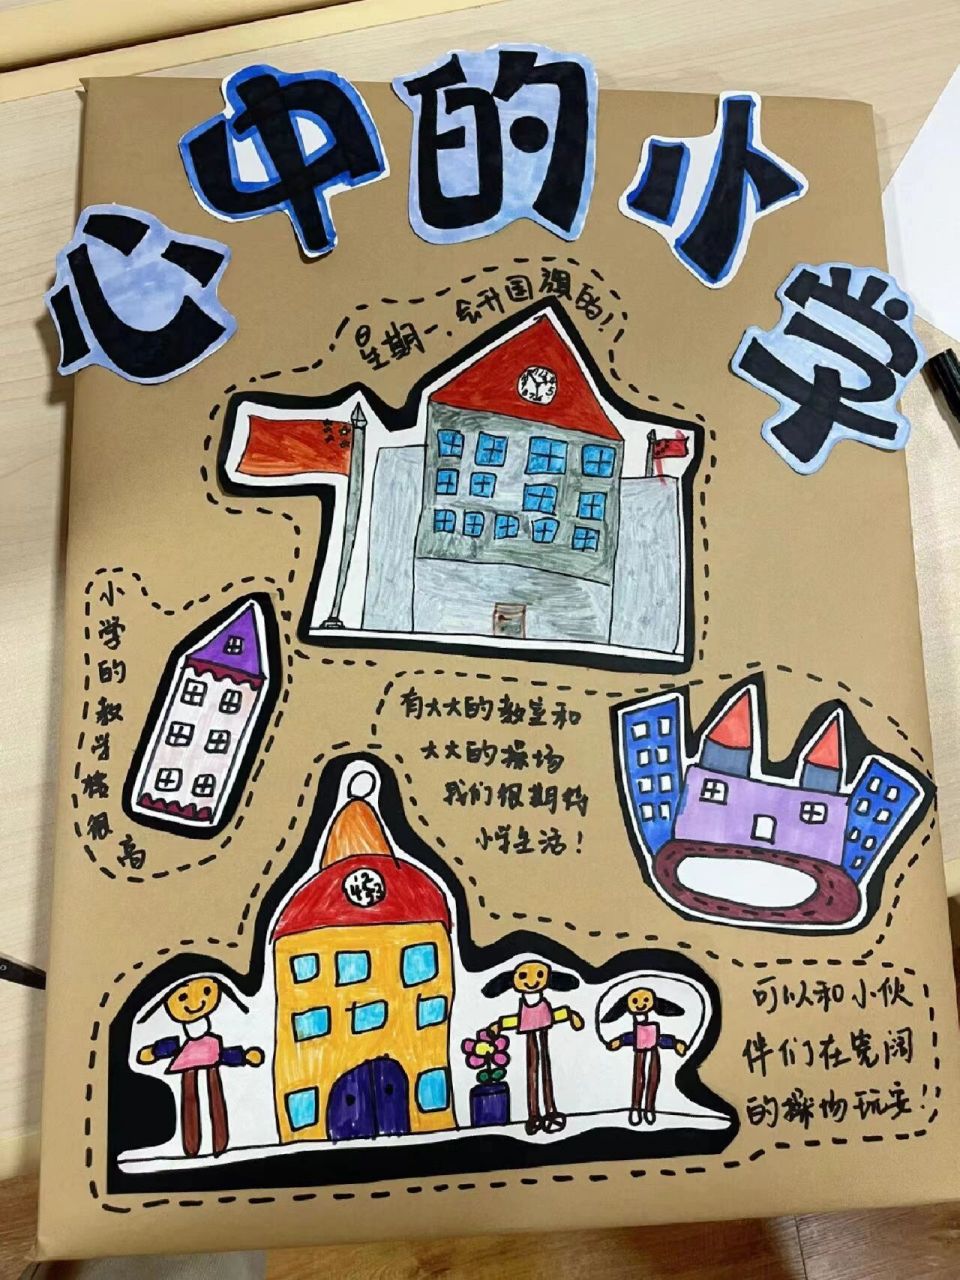 心中的小学
星期一,会升国旗的!
小学的教学楼很高
有大大的教室和
大大的操场
我们很期待
小学生活!
可以和小伙
伴们在宽阔
的操场玩耍!!